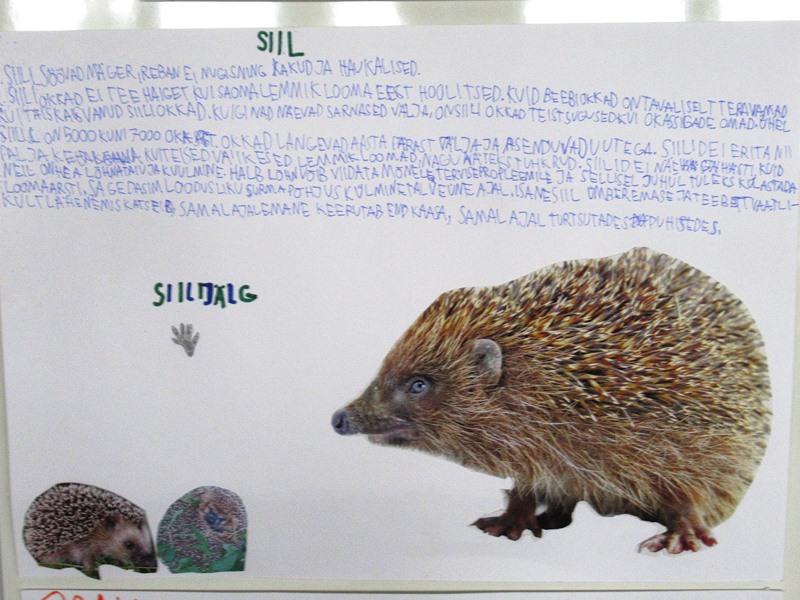 SIIL
SIILI SÖÖVAD MÄGER, REBANE, NUGIS NING KAKUD JA HAUKALISED.
SIILI OKKAD EI TEE HAIGET KUI SA OMA LEMMIKLOOMA EEST HOOLITSED. KUID BEEBI OKKAD ON TAVALISELT TERAVAMAD
KUI TÄISKASVANUD SIILI OKKAD. KUIGI NAD NÄEVAD SARNASED VÄLJA, ON SIILI OKKAD TEISTSUGUSED KUI OKASSIGADE OMAD. ÜHEL
SIILIL ON 5000 KUNI 7000 OKAST. OKKAD LANGEVAD AASTA PÄRAST VÄLJA JA ASENDUVAD UUTEGA. SIILID EI ERITA NII
PALJU KUI TEISED VÄIKESED LEMMIKLOOMAD, NAGU NÄITEKS TUHKRUD. SIILID EI NÄE HÄSTI, KUID
NEIL ON HEA LÕHNATAJU JA KUULMINE. HALB LÕHN VÕIB VIIDATA MÕNELE TERVISEPROPLEEMILE JA SELLISEL JUHUL TULEKS KÜLASTADA
LOOMAARSTI. SAGEDASIM LOODUSLIKU SURMA PÕHJUS KÜLMINE TALVEUNE AJAL. ISANE SIIL ÜMBER EMASE JA TEEB ETTVAATLI-
KULT LÄHENEMISKATSEID, SAMAL AJAL EMANE KEERUTAB END KAASA, SAMAL AJAL TURTSUTADES PUHISEDES.
SIILI JÄLG